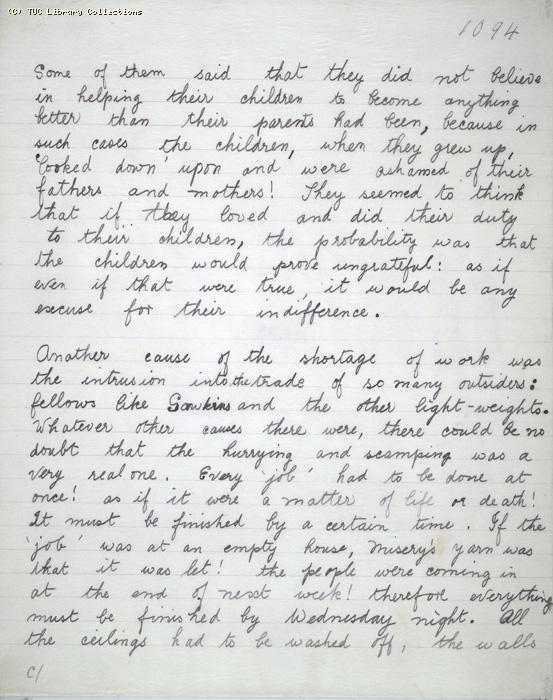 (C) TUC Library Collections
1094
Some of them said that they did not believe
in helping their children to become anything
better than their parents had been, because in
such cases the children, when they grew up,
'looked down' upon and were ashamed of their
fathers and mothers! They seemed to think
that if they loved and did their duty
to their children, the probability was that
the children would prove ungrateful: as if
even if that were true, it would be any
excuse for their indifference.
Another cause of the shortage of work was
the intrusion into the trade of so many outsiders:
fellows like Sawkins and the other light-weights.
Whatever other causes there were, there could be no
doubt that the hurrying and scamping was a
very real one. Every 'job' had to be done at
once! as if it were a matter of life or death!
It must be finished by a certain time. If the
'job' was at an empty house, Misery's yarn was
that it was let! the people were coming in
at the end of next week! therefore everything
must be finished by Wednesday night. All
the ceilings had to be washed off, the walls
C/